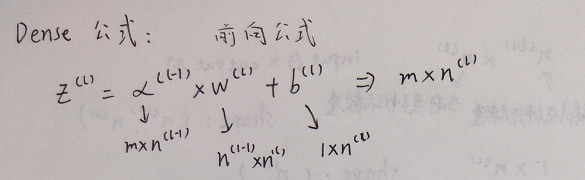 Dense 公式： 前向公式
Z^(l) = α^(l-1) × W^(l) + b^(l) ⇒ m×n^(l)
↓ ↓ ↓
m×n^(l-1) n^(l-1)×n^(l) 1×n^(l)